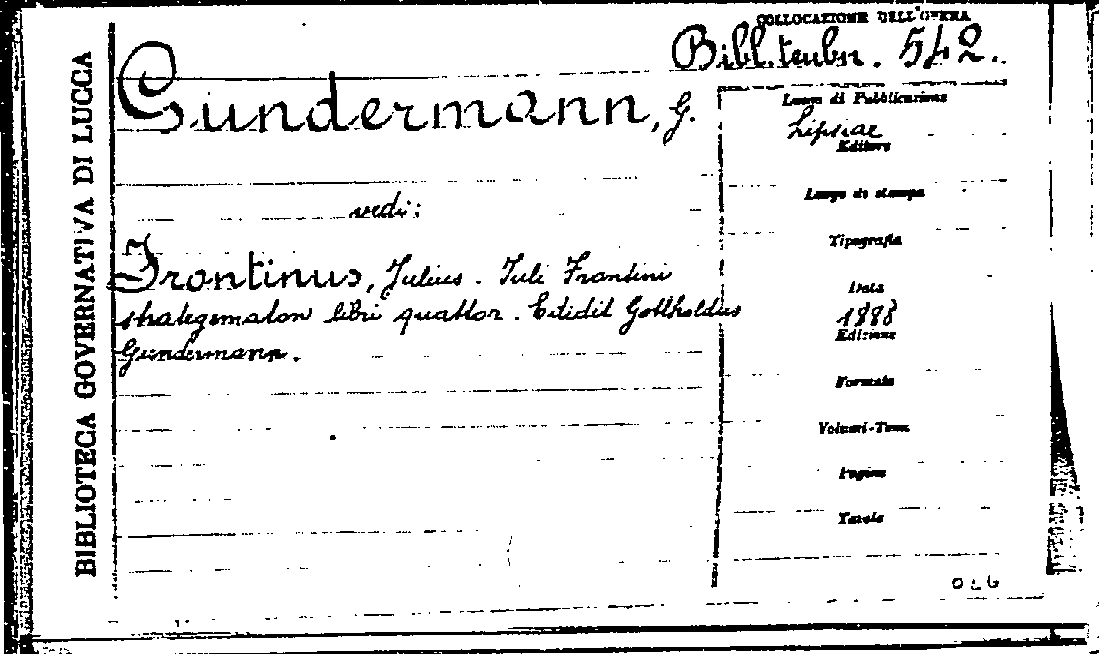 COLLOCAZIONE DELL'OPERA
Bibl. teubn. 542.
BIBLIOTECA GOVERNATIVA DI LUCCA
Gundermann, G.
vedi:
Frontinus, Julius. Juli Frontini
strategematon libri quattor. Edidit Gottholdus
Gundermann.
Luogo di Pubblicazione
Lipsiae
Editore
Luogo di stampa
Tipografia
Data
1888
Edizione
Formato
Volumi-Tomi
Pagine
Tavole